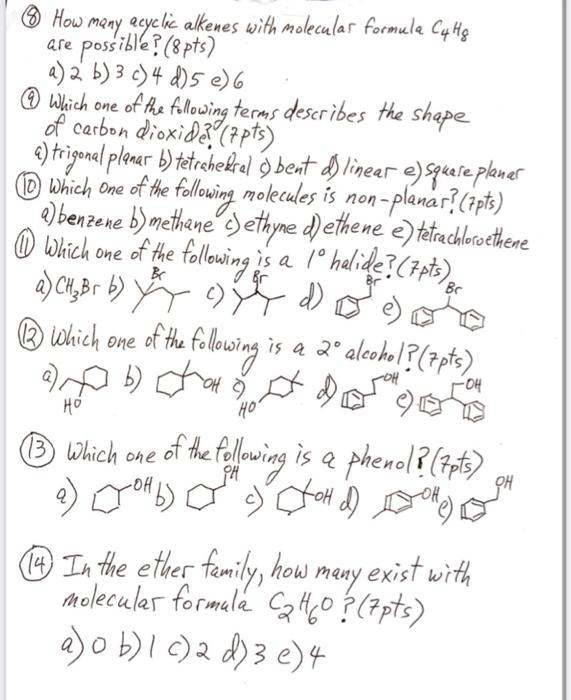 ⑧ How many acyclic alkenes with molecular formula C4H8
are possible? (8pts)
a) 2 b) 3 c) 4 d) 5 e) 6
⑨ Which one of the following terms describes the shape
of carbon dioxide? (7pts)
a) trigonal planar b) tetrahedral c) bent d) linear e) square planar
⑩ Which one of the following molecules is non-planar? (7pts)
a) benzene b) methane c) ethyne d) ethene e) tetrachloroethene
⑪ Which one of the following is a 1° halide? (7pts)
a) CH3Br b) Br c) Br d) Br e) Br
⑫ Which one of the following is a 2° alcohol? (7pts)
a) HO b) OH c) HO d) OH e) OH
⑬ Which one of the following is a phenol? (7pts)
a) OH b) OH c) OH d) OH e) OH
⑭ In the ether family, how many exist with
molecular formula C2H6O? (7pts)
a) 0 b) 1 c) 2 d) 3 e) 4